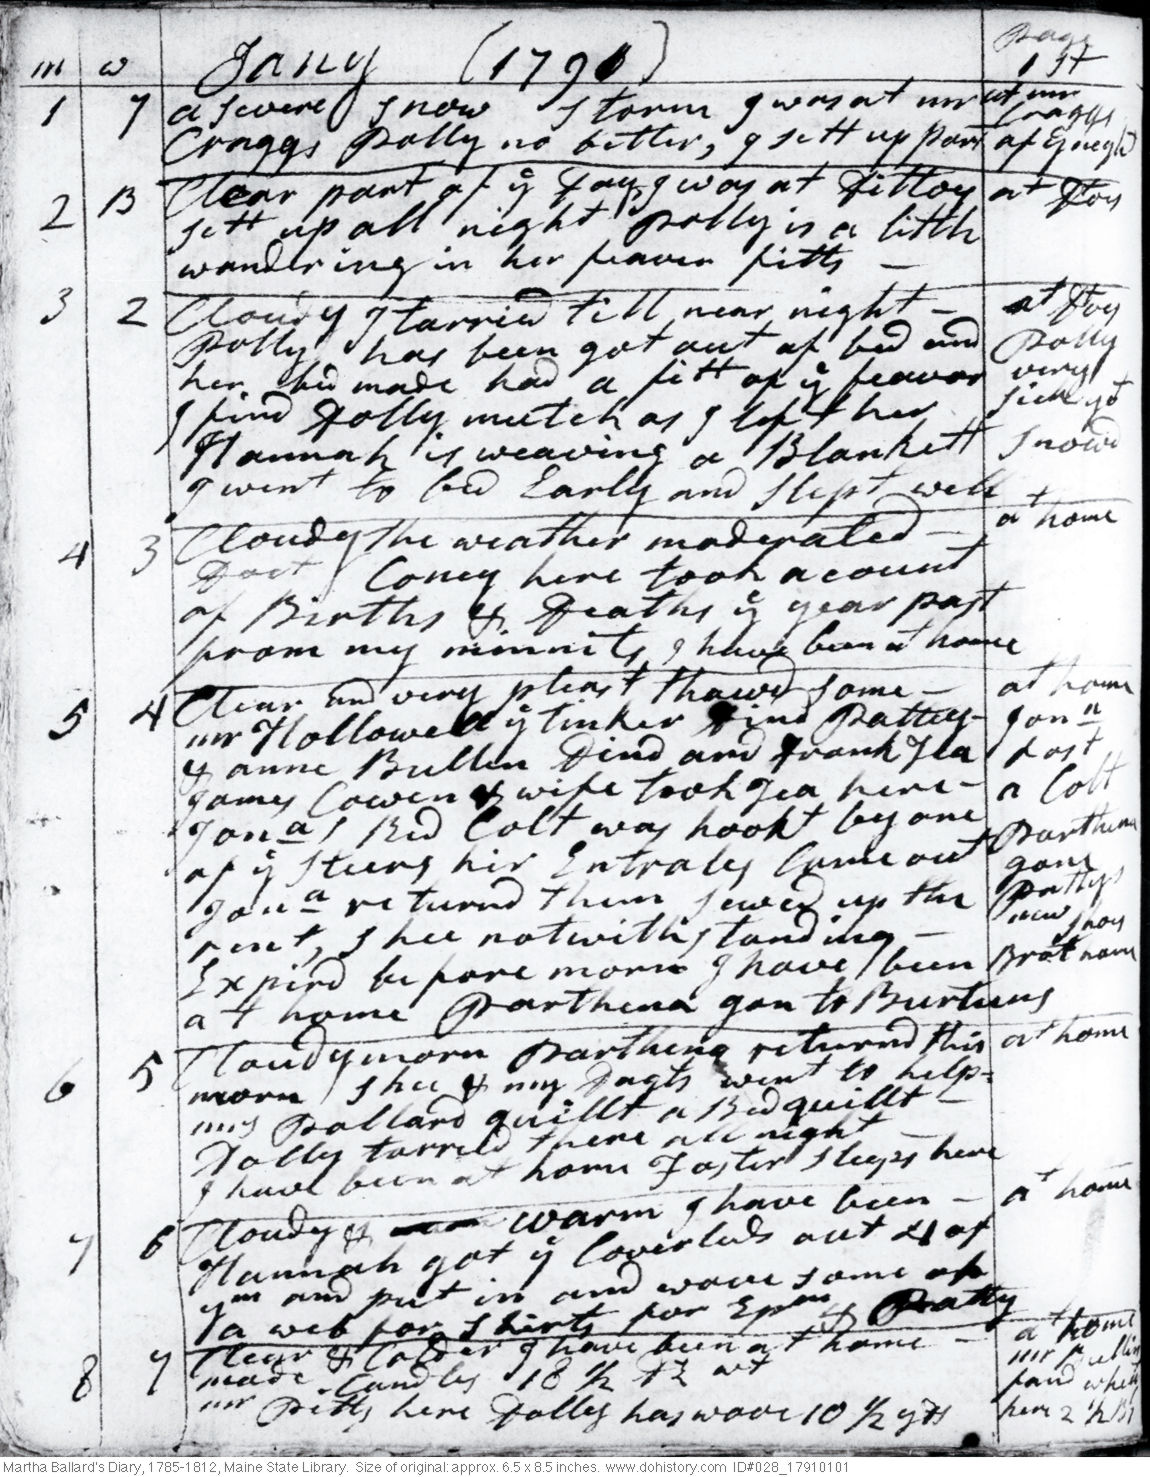 m w Jany (1791) Page 1st
1 7 a severe snow storm I was at mr at mr Craggs
Craggs Polly no better, I sett up part of ye night
2 B Clear part of ye Day, I was at Dittoes at Dtos
sett up all night Polly is a little
wandering in her feaver fitts –
3 2 Cloudy I tarried till near night – at Dtos
Polly has been got out of bed and Polly
her bed made had a fitt of ye feavor very
I find Dolly mutch as I left her sick yt
Hannah is weaving a Blankett snowd
I went to bed Early and slept well
4 3 Cloudy the weather moderated – at home
Doct Coney here took account
of Births & Deaths ye year past
from my minnits I have been at home
5 4 Clear and very pleast thawd some – at home
mr Hollowell ye tinker Dind Pattey – Jona
& anne Bullin Dind and Drank Tea lost
James Cowen & wife took Tea here – a Colt
Jonas Red Colt was hookt by one Parthena
of ye Steers hir Entrales Came out gone
Jona returnd them sewed up the Pattys new shoes
rent, shee notwithstanding –
Expird before morn I have been Brot home
at home Parthena gon to Burtuns
6 5 Cloudy morn Parthena returnd this at home
morn shee & my Dagts went to help –
mrs Pollard quillt a Bed quillt –
Dolly tarried there all night
I have been at home Foster sleeps here
7 6 Cloudy & warm I have been – at home
Hannah got ye Coverleds out 4 of
ym and put in and wove some of
a web for shirts for Epm & Patty
8 7 Clear & Colder I have been at home – at home
made Candles 18 ½ lb wt mr Bullin
mr Pitts here Dolly has wove 10 ½ yds here 2 ½ Bs